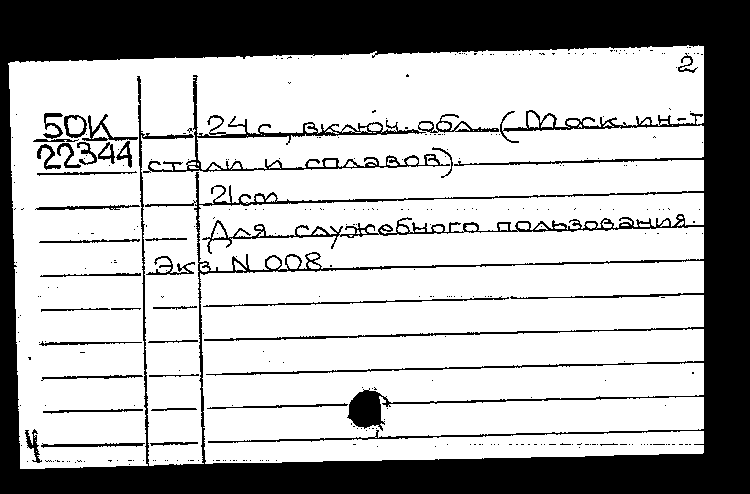 2
50К 24 с, включ. обл. (Моск. ин-т
22344 стали и сплавов).
21 cm.
Для служебного пользования.
Экз. N 008.
4